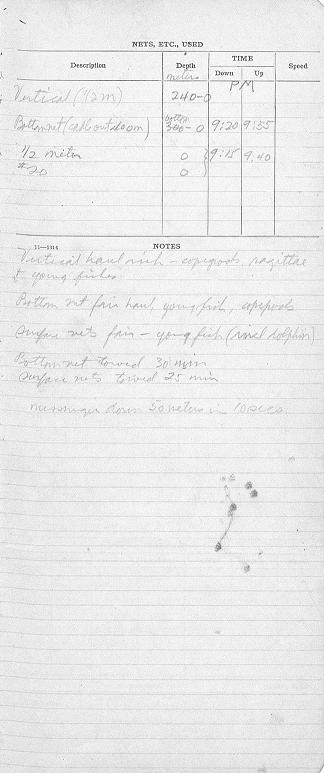 NETS, ETC., USED
Description Depth TIME Speed
meters Down Up
PM
Vertical (1/2 m) 240-0
bottom
Bottom net (cable out 600m) 300-0 9:20 9:55
1/2 meter 0 9:15 9:40
#20 0
11—1314 NOTES
Vertical haul rich - copepods, sagittae
& young fishes
Bottom net fair haul, young fish, copepods
Surface nets fair - young fish (incl dolphin)
Bottom net towed 30 min
Surface nets towed 25 min
messenger down 50 meters in 10 secs.